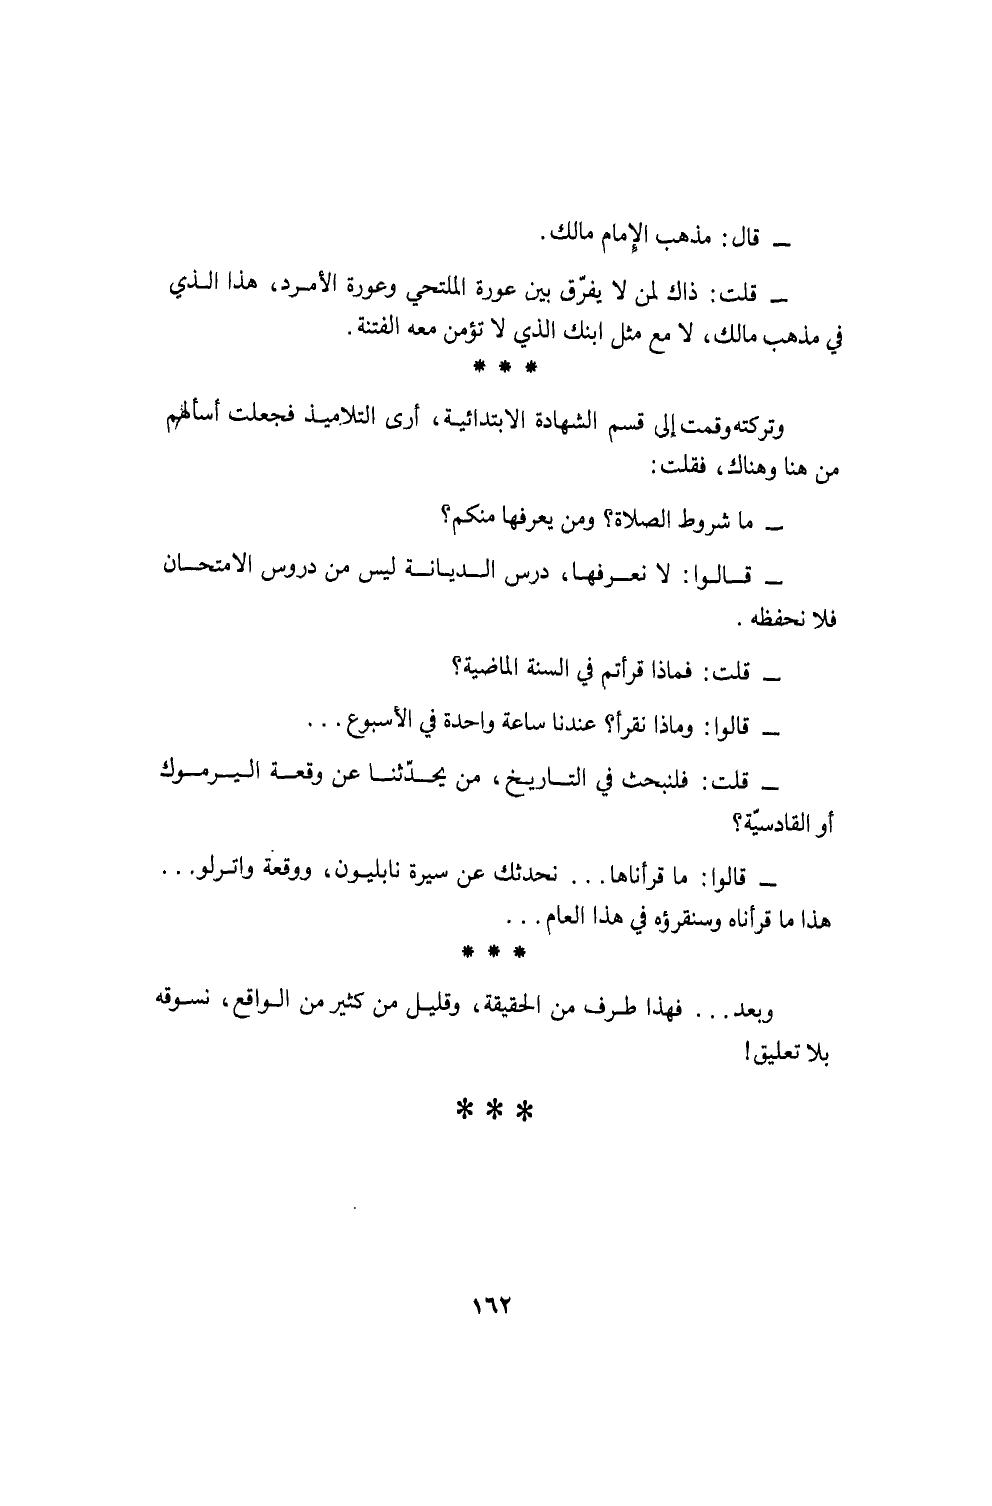 ــ قال: مذهب الإمام مالك.
ــ قلت: ذاك لمن لا يفرّق بين عورة الملتحي وعورة الأمرد، هذا الذي
في مذهب مالك، لا مع مثل ابنك الذي لا تؤمن معه الفتنة.
* * *
وتركته وقمت إلى قسم الشهادة الابتدائية، أرى التلاميذ فجعلت أسألهم
من هنا وهناك، فقلت:
ــ ما شروط الصلاة؟ ومن يعرفها منكم؟
ــ قالوا: لا نعرفها، درس الديانة ليس من دروس الامتحان
فلا نحفظه.
ــ قلت: فماذا قرأتم في السنة الماضية؟
ــ قالوا: وماذا نقرأ؟ عندنا ساعة واحدة في الأسبوع...
ــ قلت: فلنبحث في التاريخ، من يحدّثنا عن وقعة اليرموك
أو القادسيّة؟
ــ قالوا: ما قرأناها... نحدثك عن سيرة نابليون، ووقعة واترلو...
هذا ما قرأناه وسنقرؤه في هذا العام...
* * *
وبعد... فهذا طرف من الحقيقة، وقليل من كثير من الواقع، نسوقه
بلا تعليق!
* * *
١٦٢